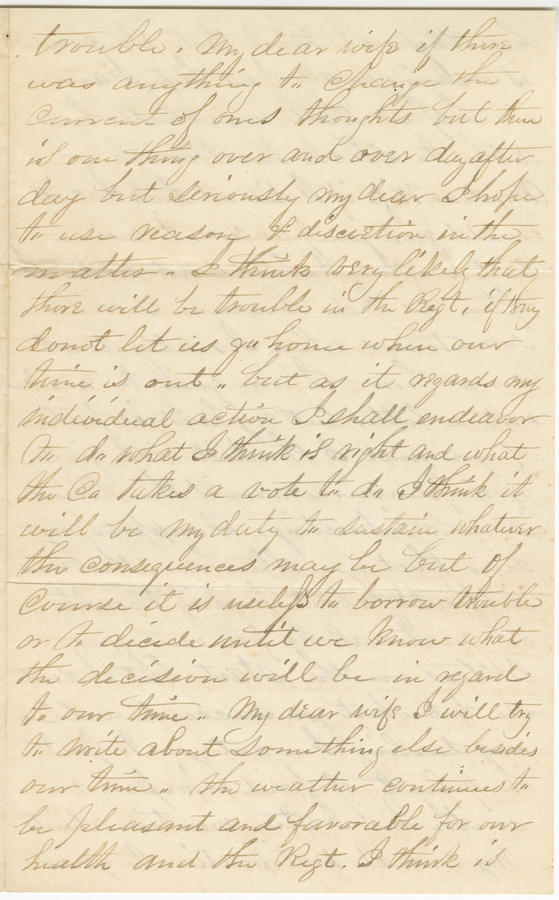 trouble. My dear wife if there
was anything to change the
current of ones thoughts but there
is one thing over and over day after
day but seriously my dear I hope
to use reason & discretion in the
matter. I think very likely that
there will be trouble in the Regt. if they
donot let us go home when our
time is out. but as it regards my
individual action I shall endeavor
to do what I think is right and what
the Co takes a vote to do I think it
will be my duty to sustain whatever
the consequences may be but of
course it is useless to borrow trouble
or to decide until we know what
the decision will be in regard
to our time. My dear wife I will try
to write about something else besides
our time. the weather continues to
be pleasant and favorable for our
health and the Regt. I think is